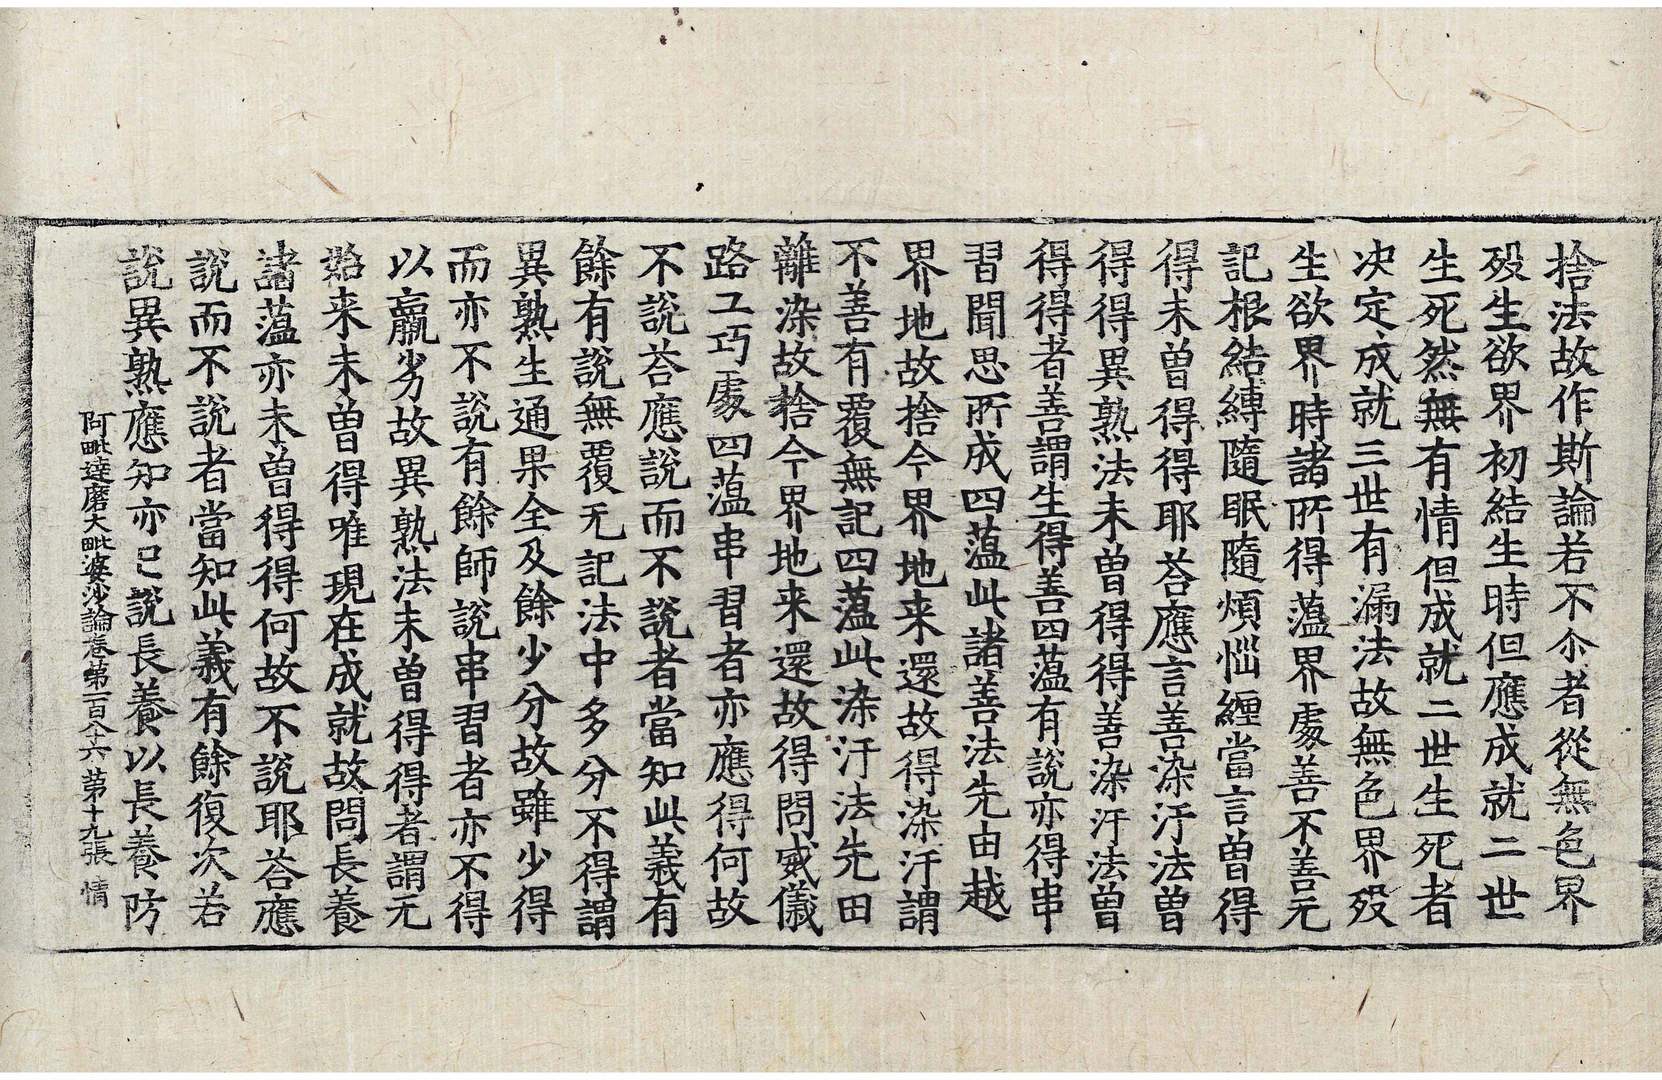 捨法故作斯論若不尒者從無色界
歿生欲界初結生時但應成就二世
生死然無有情但成就二世生死者
決定成就三世有漏法故無色界歿
生欲界時諸所得蘊界處善不善无
記根結縛隨眠隨煩惱纏當言曾得
得未曾得得耶荅應言善染汙法曾
得得異熟法未曾得得善染汙法曾
得得者善謂生得善四蘊有說亦得串
習聞思所成四蘊此諸善法先由越
界地故捨今界地来還故得染汙謂
不善有覆無記四蘊此染汙法先田
離染故捨今界地来還故得問威儀
路工巧處四蘊串習者亦應得何故
不說荅應說而不說者當知此義有
餘有說無覆无記法中多分不得謂
異熟生通果全及餘少分故雖少得
而亦不說有餘師說串習者亦不得
以羸劣故異熟法未曾得得者謂无
始来未曾得唯現在成就故問長養
諸蘊亦未曾得得何故不說耶荅應
說而不說者當知此義有餘復次若
說異熟應知亦已說長養以長養防
阿毗達磨大毗婆沙論卷第一百八十六 第十九張 情